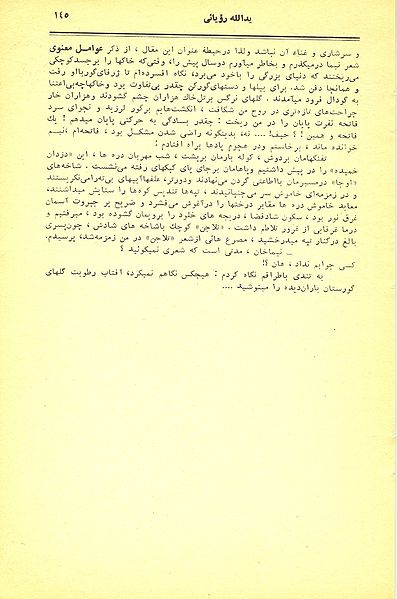 یدالله رؤیائی
۱۴۵
و سرشاری و غناء آن نباشد ولذا درحیطهٔ عنوان این مقال ، از ذکر عوامل معنوی
شعر نیما درمیگذرم و بخاطر میآورم دوسال پیش را، وقتی‌که خاکها را برجسدکوچکی
می‌ریختند که دنیای بزرگی را باخود می‌برد، نگاه افسرده‌ام تا ژرفای‌گورباو رفت
و همانجا دفن شد. برای بیلها و دستهای‌گورکن چقدر بی‌تفاوت بود وخاکهاچه‌بی‌اعتنا
به گودال فرود میآمدند . گلهای نرگس برتل‌خاک هزاران چشم گشودند وهزاران خار
جراحت‌های تازه‌تری در روح من شکافت ، انگشت‌هایم برگور لرزید و نجوای سرد
فاتحه نفرت پایان را در من ریخت : چقدر بسادگی به حرکتی پایان میدهم ! یک
فاتحه و همین !؟ حیف! .... نه، بدینگونه راضی شدن مشکل بود ، فاتحه‌ام ،نیم
خوانده ماند ، برخاستم ودر هجوم یادها براه افتادم :
تفنگهامان بردوش ، کوله بارمان برپشت ، شب مهربان دره ها ، این «دزدان
خمیده» را در پیش داشتیم وپاهامان برجای پای کپکهای رفته می‌نشست . شاخه‌های
«اوجا» درمسیرمان بااطاعتی گردن می‌نهادند ودورتر، علفهاآبیهای بی‌ته‌رامی‌نگریستند
و در زمزمه‌ای خاموش سر می‌جنبانیدند ، تپه‌ها تندیس کوه‌ها را ستایش میداشتند،
معابد خاموش دره ها مقابر درختها را درآغوش می‌فشرد و ضریح پر جبروت آسمان
غرق نور بود ، سکون شادفضا ، دریچه های خلود را برویمان گشوده بود ، میرفتیم و
درما غرقابی از غرور تلاطم داشت . «تلاجن» کوچک باشاخه های شادش ، چون‌پسری
بالغ درکنار تپه میدرخشید ، مصرع هائی ازشعر «تلاجن» در من زمزمه‌شد، پرسیدم.
ــ نیماخان ، مدتی است که شعری نمیگوئید ؟
کسی جوابم نداد ، هان ؟!
به تندی باطرافم نگاه کردم : هیچکس نگاهم نمیکرد، آفتاب رطوبت گلهای
گورستان باران‌دیده را مینوشید ....